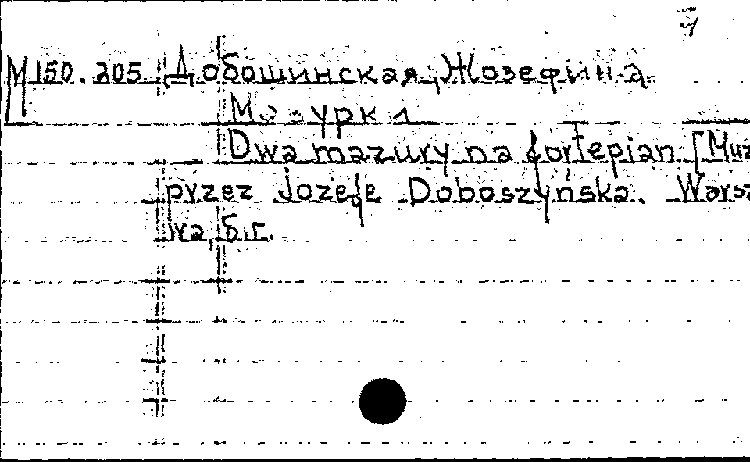 М 150.205 Добошинская, Жозефина
Мазурки
Dwa mazury na fortepian [Muz
przez Jozefę Doboszyńska. Warsz
wa, б.г.